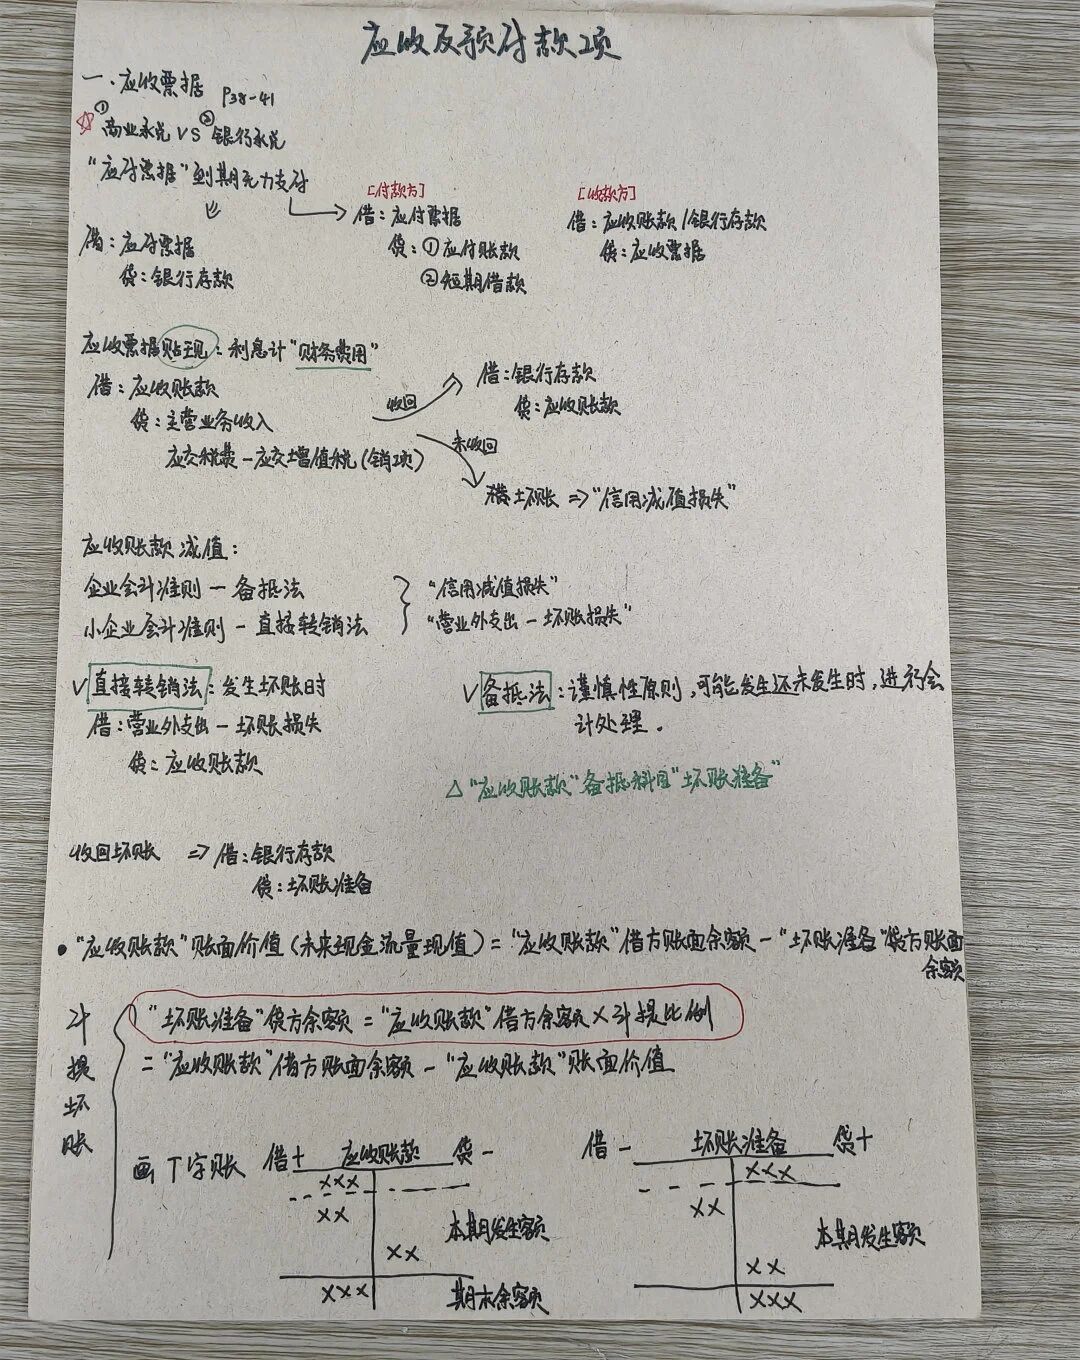 应收及预付款项
一、应收票据 P38-41
☆ ①商业承兑 VS ②银行承兑
"应付票据"到期无力支付
[付款方] [收款方]
借：应付票据 借：应收账款/银行存款
借：应付票据 贷：①应付账款 贷：应收票据
贷：银行存款 ②短期借款
应收票据贴现：利息计"财务费用"
借：应收账款 借：银行存款
贷：主营业务收入 收回 贷：应收账款
应交税费-应交增值税(销项) 未收回
坏账 => "信用减值损失"
应收账款减值：
企业会计准则-备抵法 "信用减值损失"
小企业会计准则-直接转销法 "营业外支出-坏账损失"
√直接转销法：发生坏账时 √备抵法：谨慎性原则，可能发生还未发生时，进行会
借：营业外支出-坏账损失 计处理。
贷：应收账款
△"应收账款"备抵科目"坏账准备"
收回坏账 => 借：银行存款
贷：坏账准备
•"应收账款"账面价值(未来现金流量现值)="应收账款"借方账面余额-"坏账准备"贷方账面
余额
计提坏账
"坏账准备"贷方余额="应收账款"借方余额×计提比例
="应收账款"借方账面余额-"应收账款"账面价值
画T字账 借+ 应收账款 贷- 借- 坏账准备 贷+
××× ×××
×× ××
本期发生额 本期发生额
×× ××
××× 期末余额 ×××